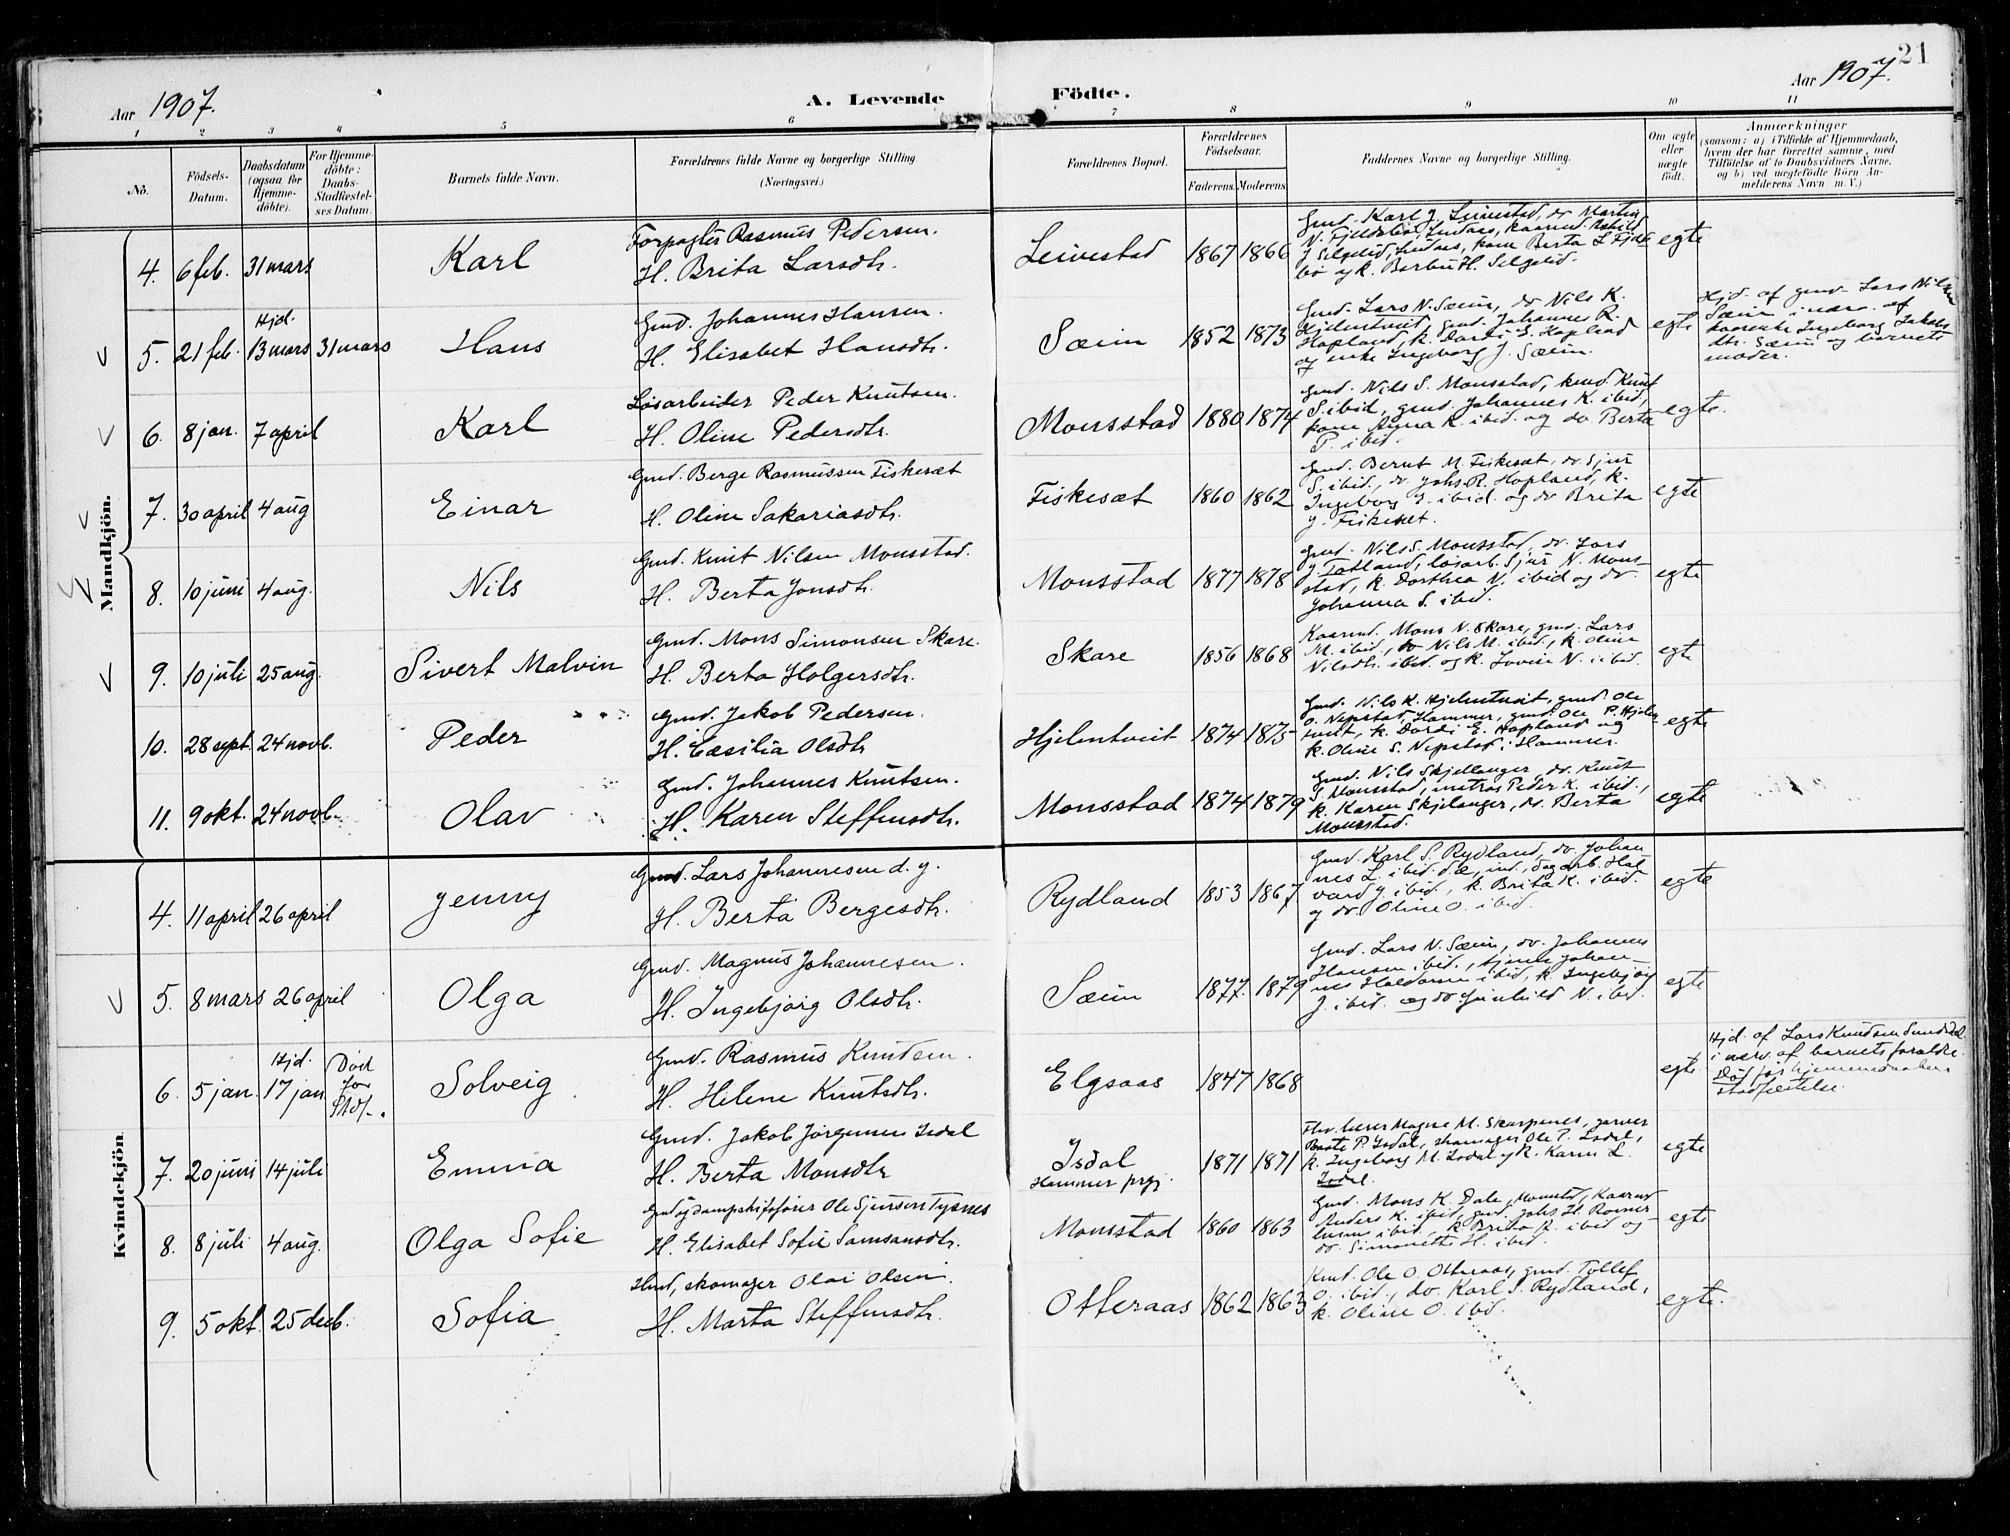 21
Aar 1907.
A. Levende Födte.
Aar 1907.
1 2 3 4 5 6 7 8 9 10 11
No.
Födsels-Datum.
Daabsdatum (ogsaa for Hjemme-döbte).
For Hjemme-döbte: Daabs-Stadfæstel-ses Datum.
Barnets fulde Navn.
Forældrenes fulde Navne og borgerlige Stilling.
(Næringsvei.)
Forældrenes Bopæl.
Forældrenes Födselsaar.
Faderens. Moderens.
Faddernes Navne og borgerlige Stilling.
Om ægte eller uægte födt.
Anmærkninger
(saasom: a) i Tilfælde af Hjemmedaab,
hvem der har forrettet samme, med
Tilföielse af to Daabsvidners Navne,
og b) ved uægtefödte Börn An-
melderens Navn m. V.)
Mandkjön.
4. 6 feb. 31 mars Karl
Forpagter Rasmus Pedersen.
H. Brita Larsdtr.
Leivestad 1867 1866
Gmd. Karl J. Leivestad, do Martin
egte
5. 21 feb. Hjd. 13 mars 31 mars Hans
Gmd. Johannes Hansen.
H. Elisabet Hansdtr.
Sæim 1852 1873
Gmd. Lars N. Sæim, do Nils K.
Hjelmtveid, gmd. Johannes R.
Hopland, k. Dordi E. Hopland
og enke Ingeborg J. Sæim.
egte
Hjd. af gmd. Lars Nilsen
Sæim i nærv. af
kaarenke Ingeborg Jakobs
dtr. Sæim og barnets
moder.
6. 8 jan. 7 april Karl
Løsarbeider Peder Knutsen.
H. Oline Pedersdtr.
Monsstad 1880 1874
Gmd. Nils S. Monsstad, kmd. Knut
S. ibid, gmd. Johannes K. ibid,
kone Anna K. ibid. og do Berta
P. ibid.
egte.
7. 30 april 4 aug Einar
Gmd. Berge Rasmussen Fiskesæt
H. Oline Sakariasdtr.
Fiskesæt 1860 1862
Gmd. Bernt M. Fiskesæt, do Sjur
S. ibid., do Johs R. Hopland, k.
Ingeborg S. ibid. og do Brita
J. Fiskeset.
egte
8. 10 juni 4 aug. Nils
Gmd. Knut Nilsen Monsstad.
H. Berta Jonsdtr.
Monsstad 1877 1878
Gmd. Nils S. Monsstad, do. Lars
J. Totland, løsarb. Sjur N. Mons-
stad, k. Dorthea N. ibid og do.
Johanna S. ibid.
egte
9. 10 juli 25 aug. Sivert Malvin
Gmd. Mons Simonsen Skare.
H. Berta Holgersdtr.
Skare 1856 1868
Kaarmd. Mons N. Skare, gmd. Lars
M. ibid., do Nils M. ibid., k. Oline
Nilsdtr. ibid. og k. Lovise N. ibid.
egte
10. 28 sept. 24 novb. Peder
Gmd. Jakob Pedersen.
H. Cæsilia Olsdtr
Hjelmtveit 1874 1875
Gmd. Nils K. Hjelmtveit, gmd. Ole
O. Nepstad, Hammer, gmd. Ole P. Hjelm
tveit, k. Dordi E. Hopland og
k. Oline S. Nepstad i Hammer.
egte
11. 9 okt. 24 novb. Olav
Gmd. Johannes Knutsen.
H. Karen Steffensdtr.
Monsstad 1874 1879
Gmd. Nils Skjellanger, do. Knut
S. Monsstad, matros Peder K. ibid.,
k. Karen Skjelanger, do. Berta
Monsstad.
egte
Kvindekjön.
4. 11 april 26 april Jenny
Gmd. Lars Johannesen d. y.
H. Berta Bergesdtr.
Rydland 1853 1867
Gmd. Karl S. Rydland, do. Johan
nes L. ibid. d.æ, ind., dagarb. Hal
vard J. ibid., k. Brita K. ibid.
og do. Oline O. ibid.
egte
5. 8 mars 26 april Olga
Gmd. Magnus Johannesen.
H. Ingebjørg Olsdtr.
Sæim 1877. 1879
Gmd. Lars N. Sæim, do. Johannes
Hansen ibid., tjener Johan-
nes Haldorsen ibid, k. Ingebjørg
J. ibid. og do Gunhild N. ibid.
egte
6. 5 jan. Hjd. 17 jan. Død før Stadf. Solveig
Gmd. Rasmus Knudsen.
H. Helene Knutsdtr.
Elgsaas 1847 1868
egte
Hjd. af Lars Knudsen Sundsdal
i nærv. af barnets foraldre.
Død før hjemmedaabens
stadfæstelse.
7. 20 juni 14 juli Emma
Gmd. Jakob Jørgensen Isdal
H. Berta Monsdtr
Isdal
Hammer prgj. 1871 1871
Fhv. lærer Magne M. Skarpenes, garver
Baste P. Isdal, skomager Ole P. Isdal,
k. Ingeborg M. Isdal og k. Karen L.
Isdal.
egte
8. 8 juli 4 aug. Olga Sofie
Gmd og dampskibsfører Ole Sjursen Tysnes
H. Elisabet Sofie Samsonsdtr.
Monsstad 1860 1863
Gmd. Mons K. Dale, Monsstad, Kaarmd
Anders K. ibid, gmd. Johs H. Romer
heim ibid., k. Brita R. ibid og
do. Simonette H. ibid.
egte
9. 5 okt. 25 decb. Sofia
Hmd, skomager Olai Olsen.
H. Marta Steffensdtr.
Otteraas 1862 1863
Kmd. Ole O. Otteraas, gmd. Tollef
O. ibid., do. Karl S. Rydland,
k. Oline O. ibid.
egte.